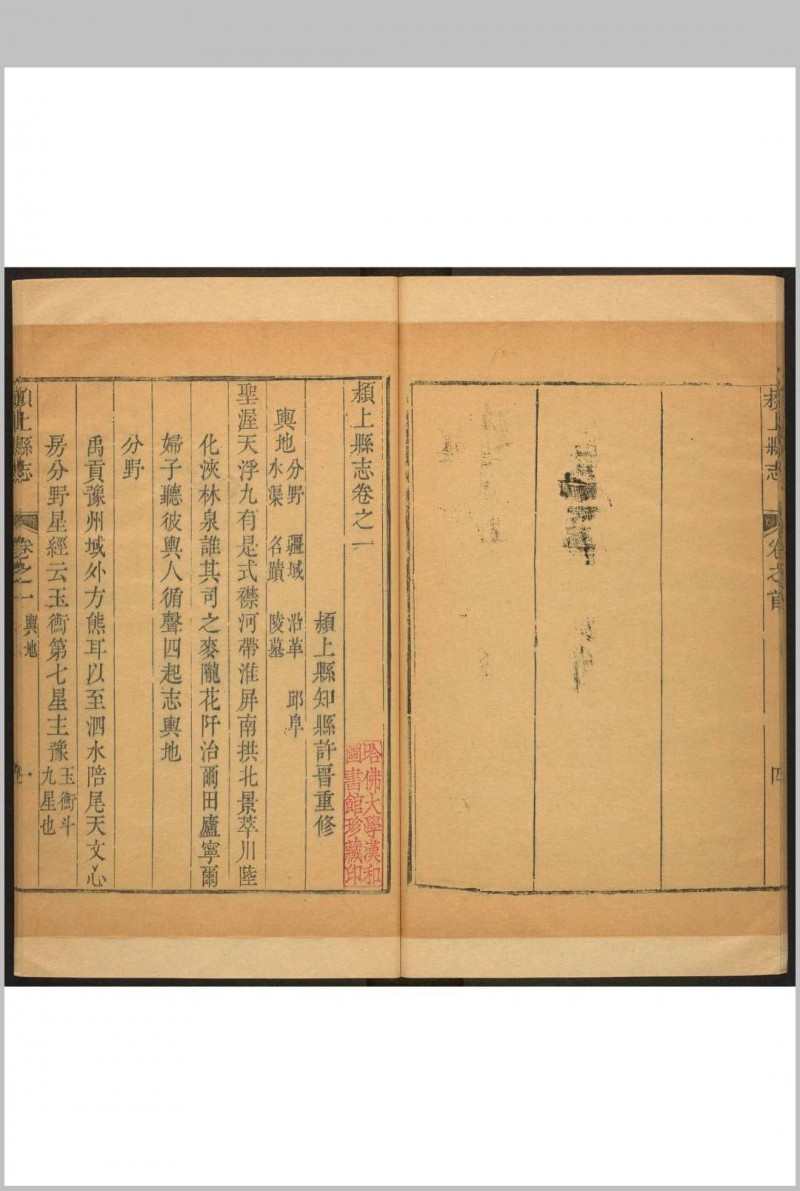 潁上縣志
卷之首
四
潁上縣志卷之一
潁上縣知縣許晋重修
輿地分野 疆域 沿革 邱阜
水渠 名蹟 陵墓
聖渥天浮九有是式襟河帶淮屏南拱北景萃川陸
化浹林泉誰其司之麥隴花阡治爾田廬寧爾
婦子聽彼輿人循聲四起志輿地
分野
禹貢豫州域外方熊耳以至泗水陪尾天文心
房分野星經云玉衡第七星主豫玉衡斗
九星也
潁上縣志
卷之一
輿地
一
哈佛大學漢和
圖書館珍藏印